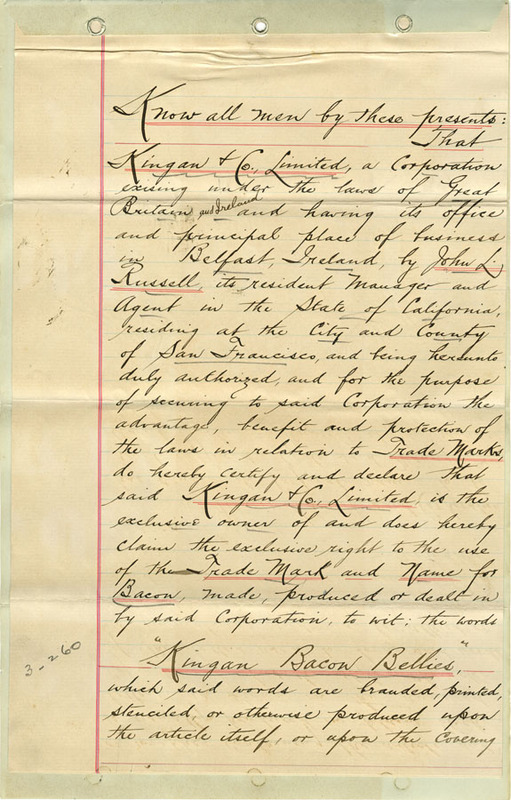 Know all men by these presents:
That
Kingan & Co., Limited, a Corporation
exising under the laws of Great
Britain and Ireland and having its office
and principal place of business
in Belfast, Ireland, by John L.
Russell, its resident Manager and
Agent in the State of California,
residing at the City and County
of San Francisco, and being hereunto
duly authorized, and for the purpose
of securing to said Corporation the
advantage, benefit and protection of
the laws in relation to Trade Marks,
do hereby certify and declare that
said Kingan & Co., Limited is the
exclusive owner of and does hereby
claim the exclusive right to the use
of the Trade Mark and Name for
Bacon, made, produced or dealt in
by said Corporation, to wit; the words
"Kingan Bacon Bellies,"
which said words are branded, printed,
stenciled, or otherwise produced upon
the article itself, or upon the covering
3-260